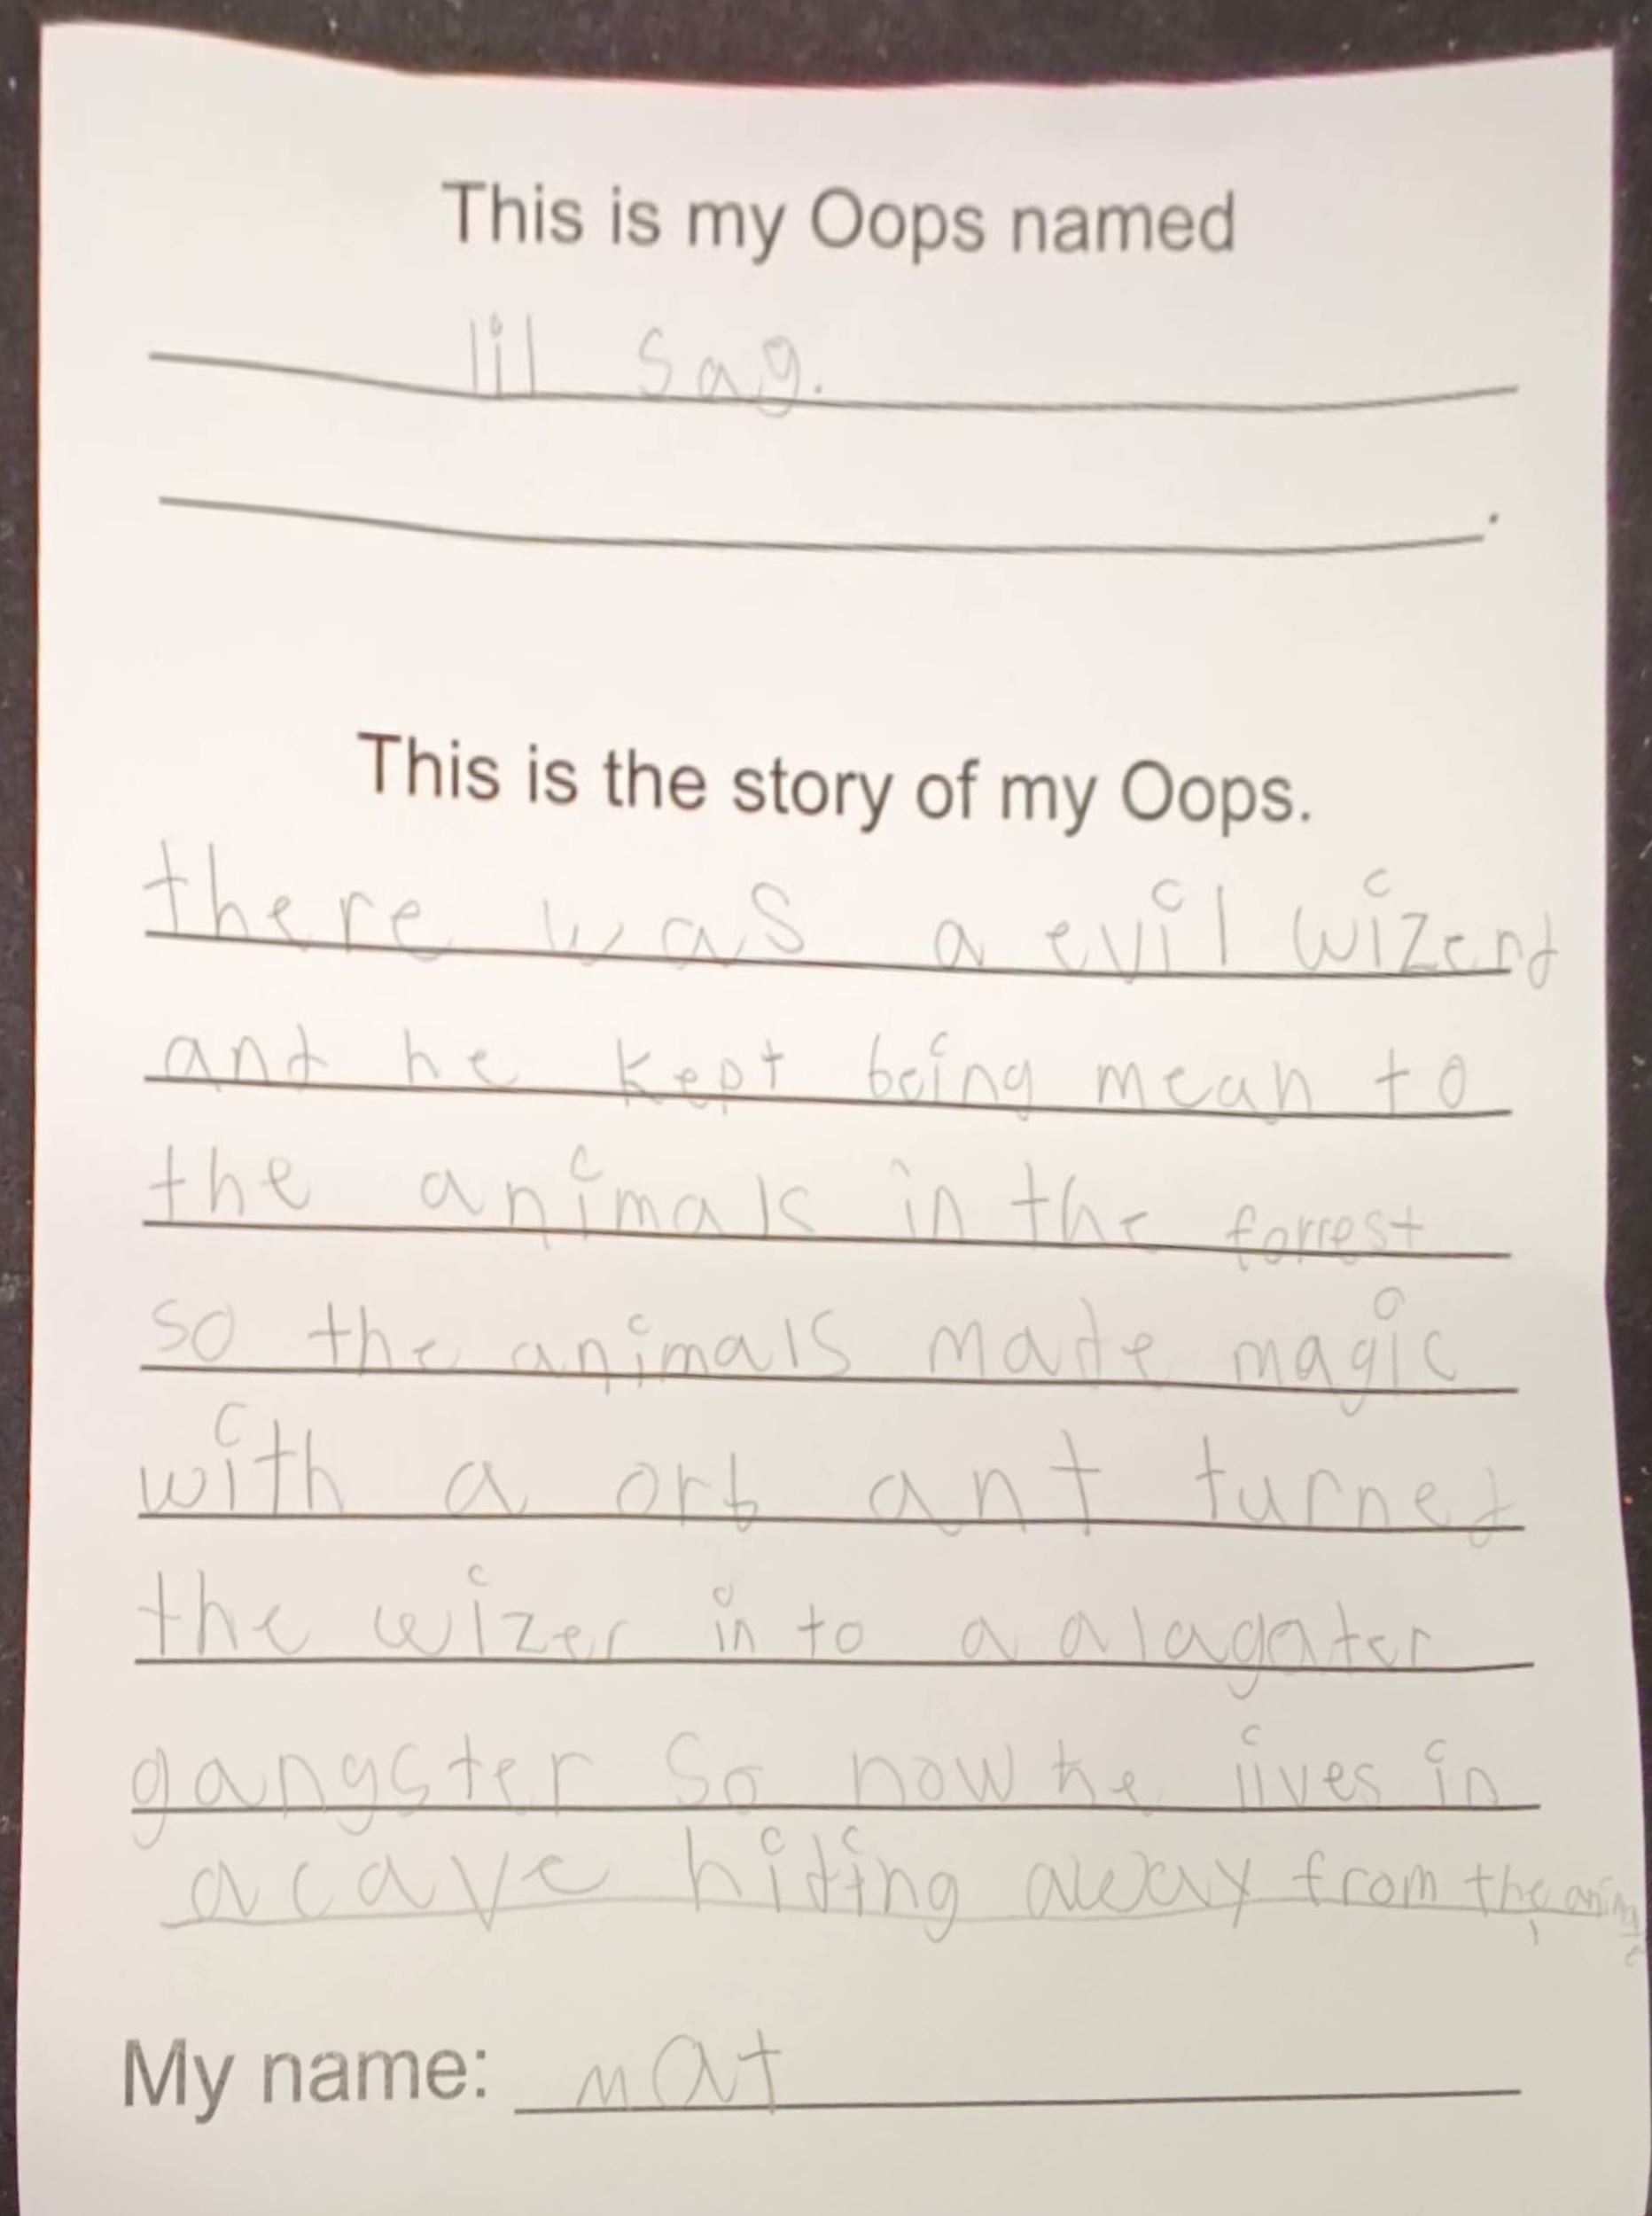 This is my Oops named
lil sag.
.
This is the story of my Oops.
there was a evil wizerd
and he kept being mean to
the animals in the forrest
so the animals made magic
with a orb ant turned
the wizer in to a alagater
gangster so now he lives in
a cave hiding away from the
My name: mat